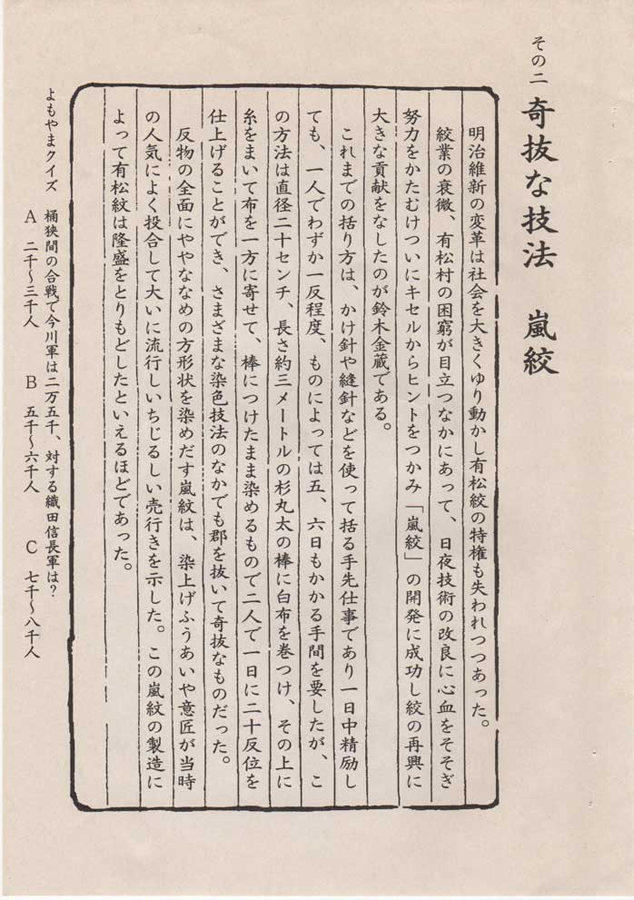 その二 奇抜な技法 嵐絞
明治維新の変革は社会を大きくゆり動かし有松絞の特権も失われつつあった。
絞業の衰微、有松村の困窮が目立つなかにあって、日夜技術の改良に心血をそそぎ
努力をかたむけついにキセルからヒントをつかみ「嵐絞」の開発に成功し絞の再興に
大きな貢献をなしたのが鈴木金蔵である。
これまでの括り方は、かけ針や縫針などを使って括る手先仕事であり一日中精励し
ても、一人でわずか一反程度、ものによっては五、六日もかかる手間を要したが、こ
の方法は直径二十センチ、長さ約三メートルの杉丸太の棒に白布を巻つけ、その上に
糸をまいて布を一方に寄せて、棒につけたまま染めるもので二人で一日に二十反位を
仕上げることができ、さまざまな染色技法のなかでも郡を抜いて奇抜なものだった。
反物の全面にややななめの方形状を染めだす嵐紋は、染上げふうあいや意匠が当時
の人気によく投合して大いに流行しいちじるしい売行きを示した。この嵐紋の製造に
よって有松絞は隆盛をとりもどしたといえるほどであった。
よもやまクイズ 桶狭間の合戦で今川軍は二万五千、対する織田信長軍は?
A 二千〜三千人 B 五千〜六千人 C 七千〜八千人